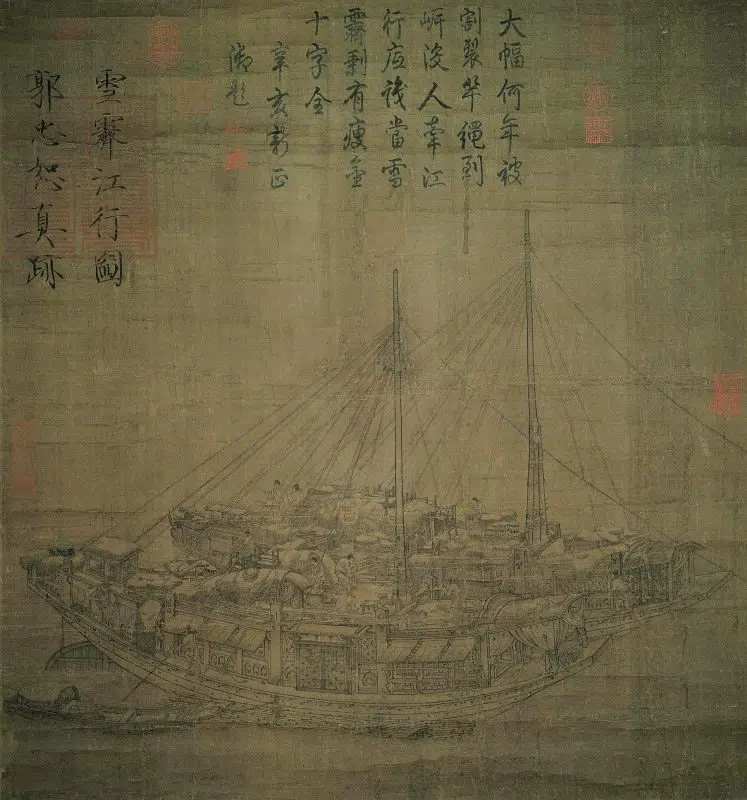 大幅何年被
割裂竿繩到
岸沒人牽江
行底識當雪
霽剩有瘦金
十字全
辛亥新正
御題
雪霽江行圖
郭忠恕真跡